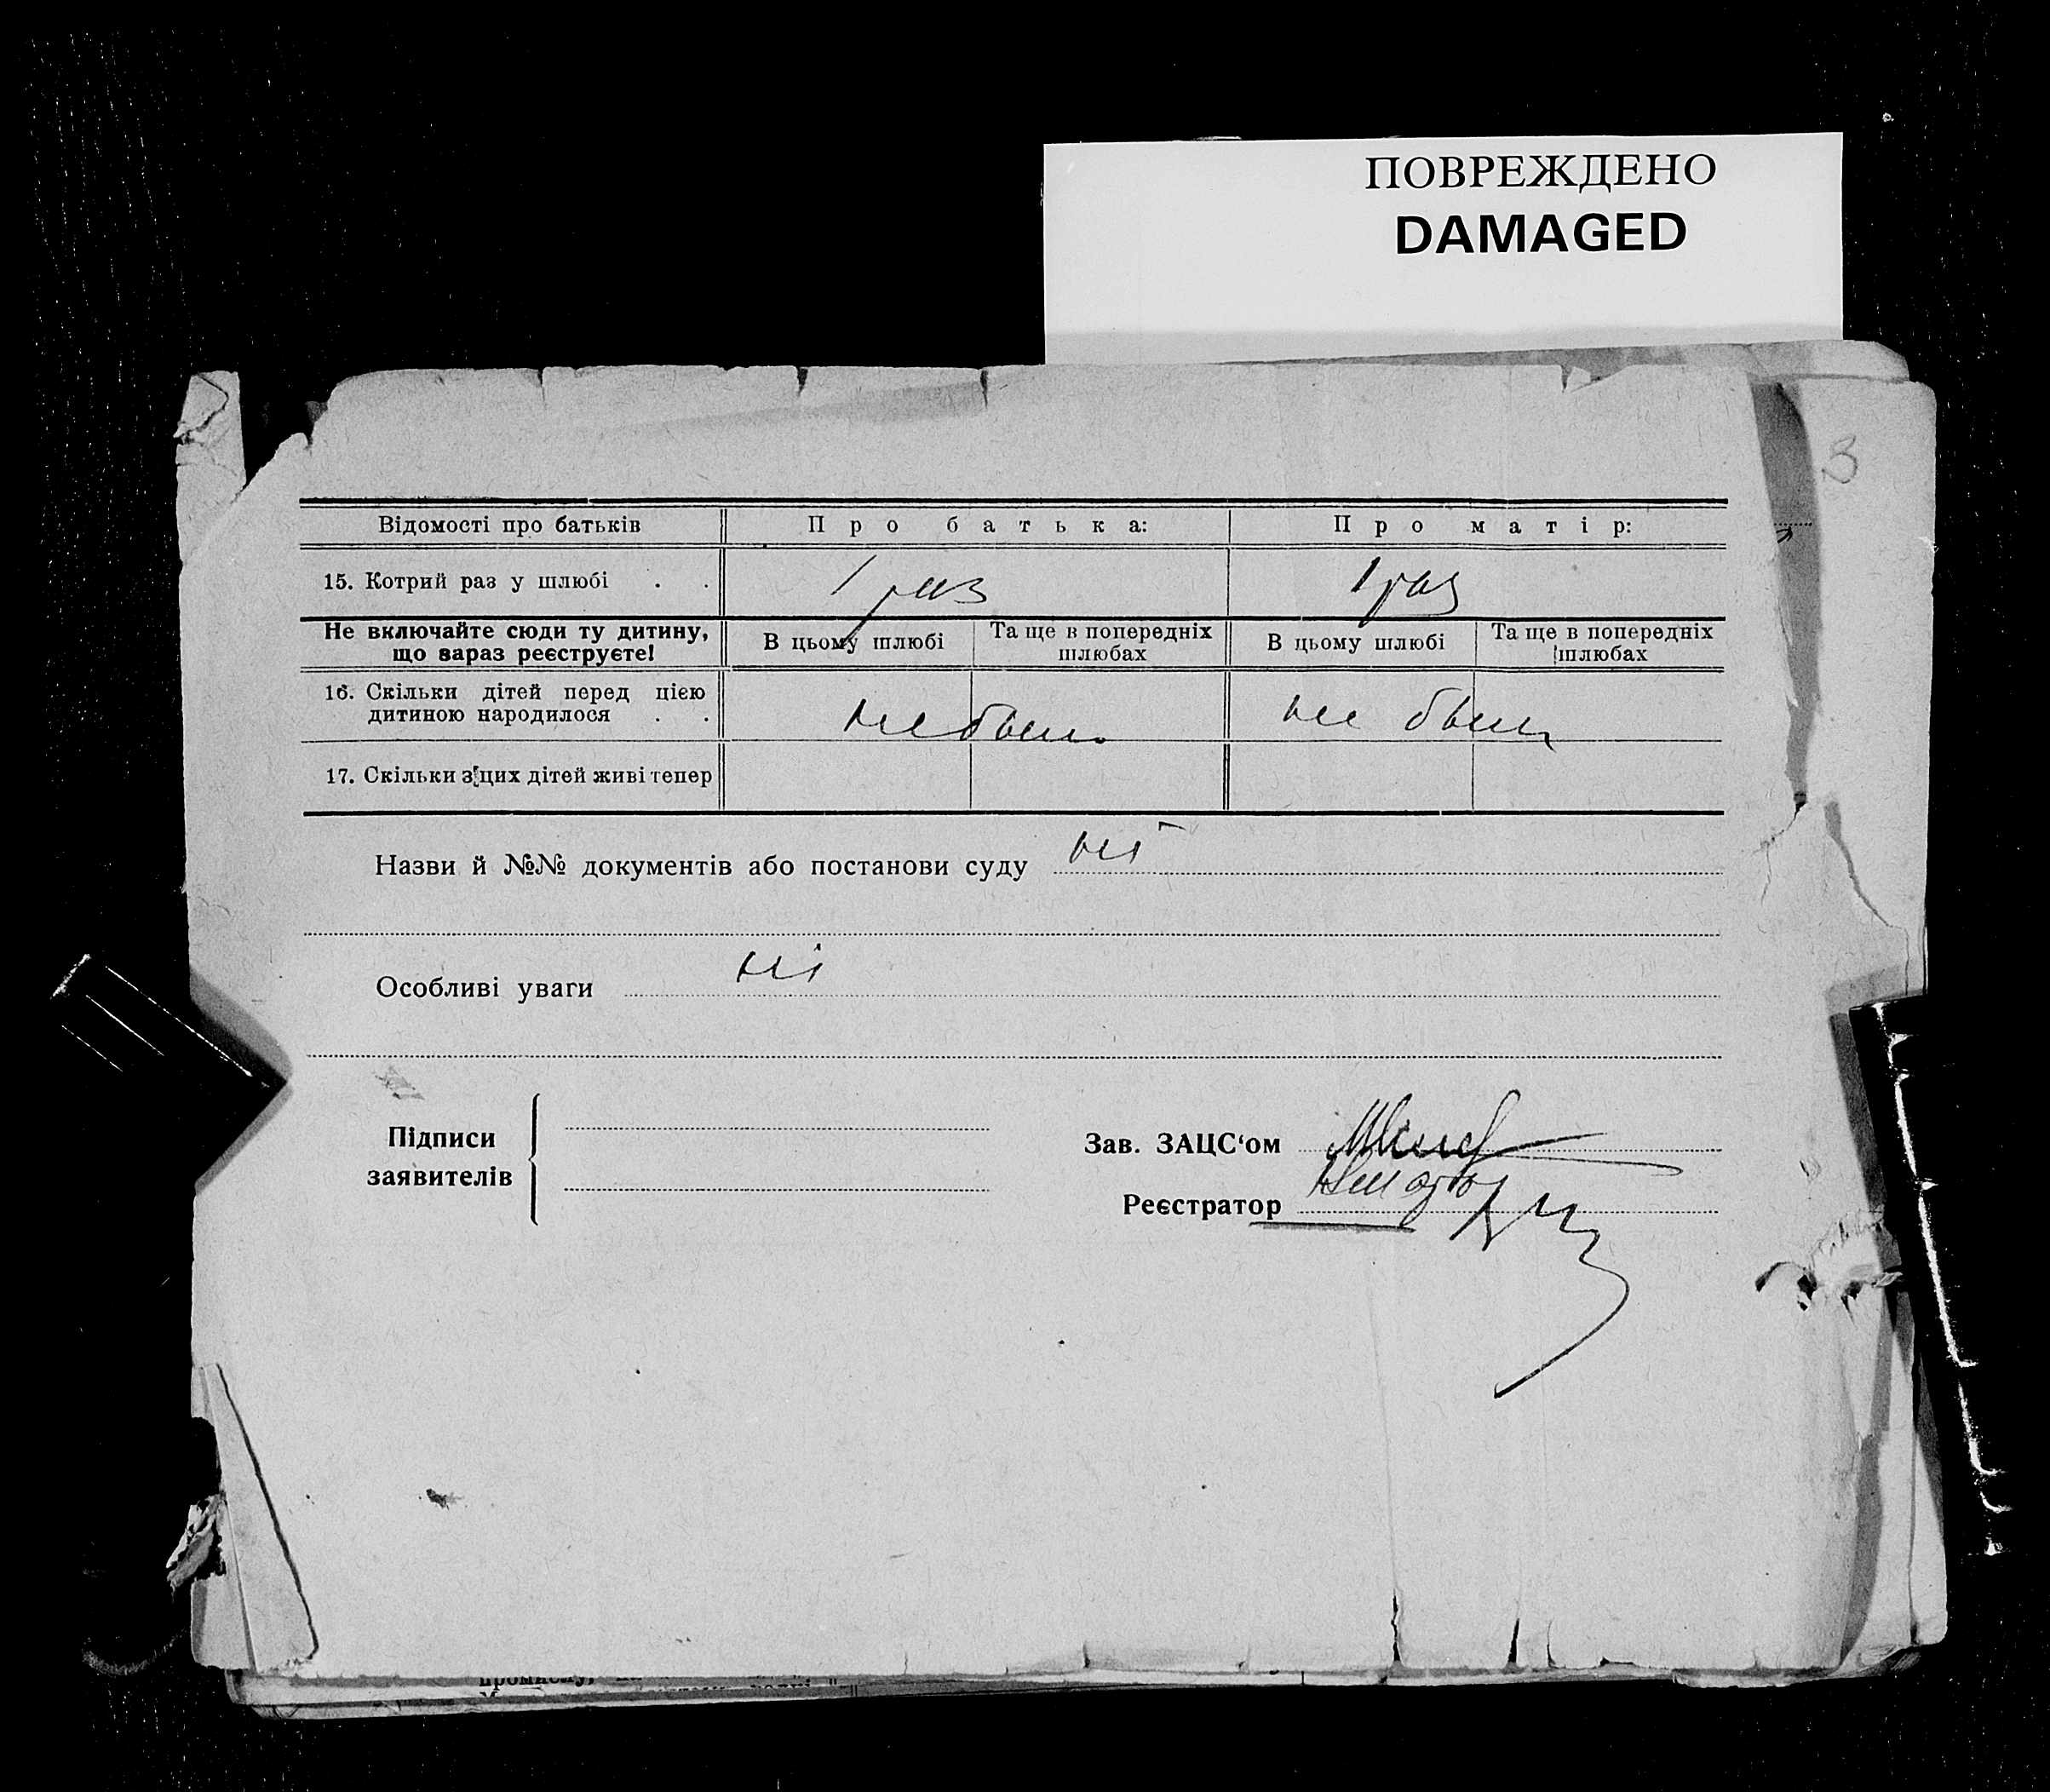 ПОВРЕЖДЕНО
DAMAGED
3
Відомості про батьків Про батька: Про матір:
15. Котрий раз у шлюбі . . 1 раз 1 раз
Не включайте сюди ту дитину, що вараз реєструєте! В цьому шлюбі Та ще в попередніх шлюбах В цьому шлюбі Та ще в попередніх шлюбах
16. Скільки дітей перед цією дитиною народилося . . не было не было
17. Скільки з цих дітей живі тепер
Назви й №№ документів або постанови суду ні
Особливі уваги ні
Підписи заявителів
Зав. ЗАЦС‘ом
Реєстратор